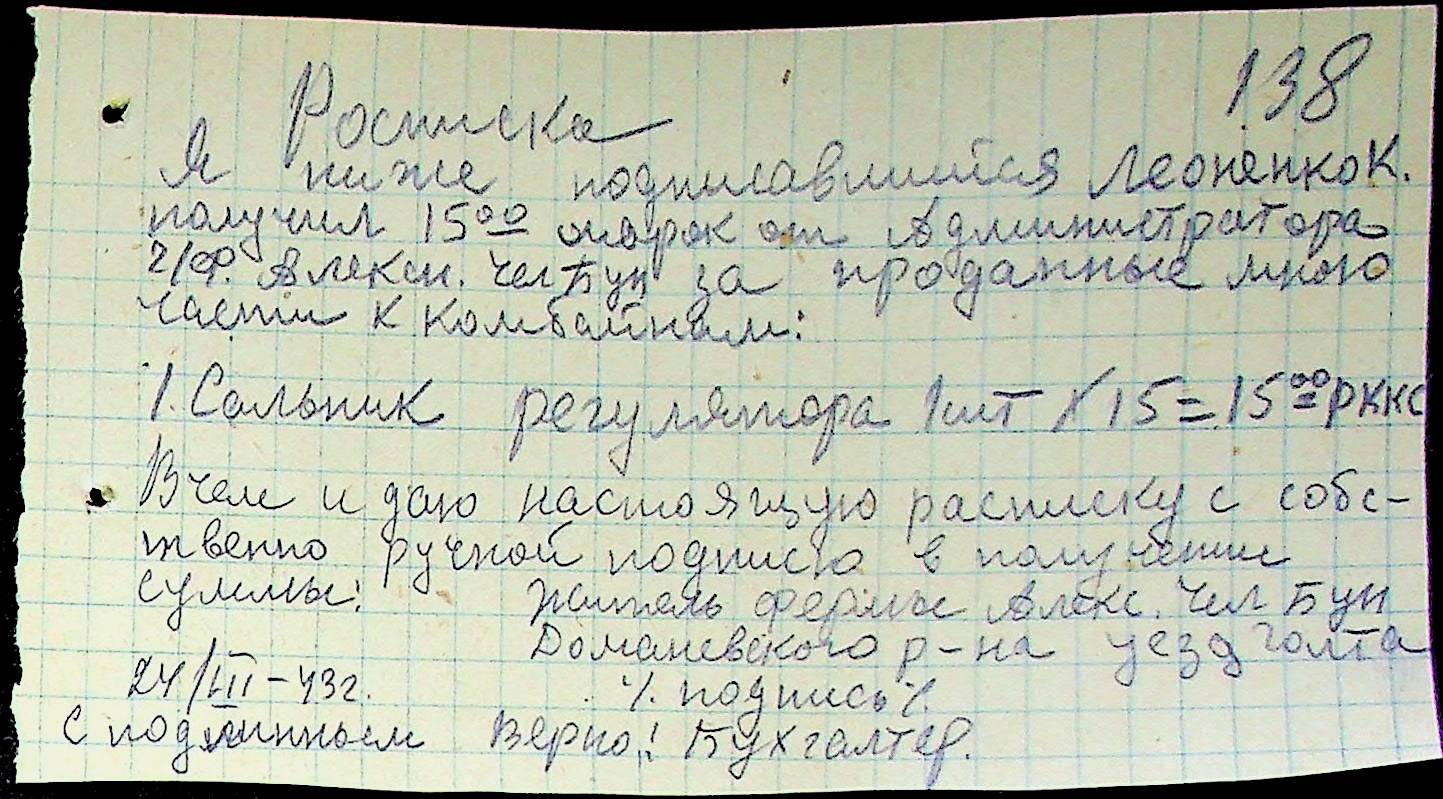 138
Росписка
Я ниже подписавшийся Леоненко К.
получил 15⁰⁰ марок от Администратора
г/ф. Алексн. чел Бун за проданные мною
части к комбайнам:
1. Сальник регулятора 1 шт х 15 = 15⁰⁰ РККС
В чем и даю настоящую расписку с собс-
твенно ручной подписю в получении
суммы: Житель фермы Алекс. чел Бун
Доманевского р-на уезд Голта
24/III – 43 г. ·/· подпись ·/·
С подлинным верно: Бухгалтер.